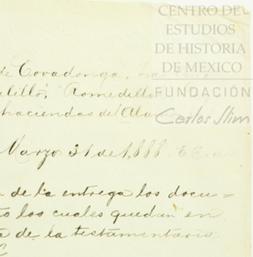 CENTRO DE
ESTUDIOS
DE HISTORIA
DE MEXICO
FUNDACIÓN
Carlos Slim
de Covadonga,
haciendas de
Marzo 31 de 1888.
de la entrega los docu=
los cuales quedan en
de la testamentaria